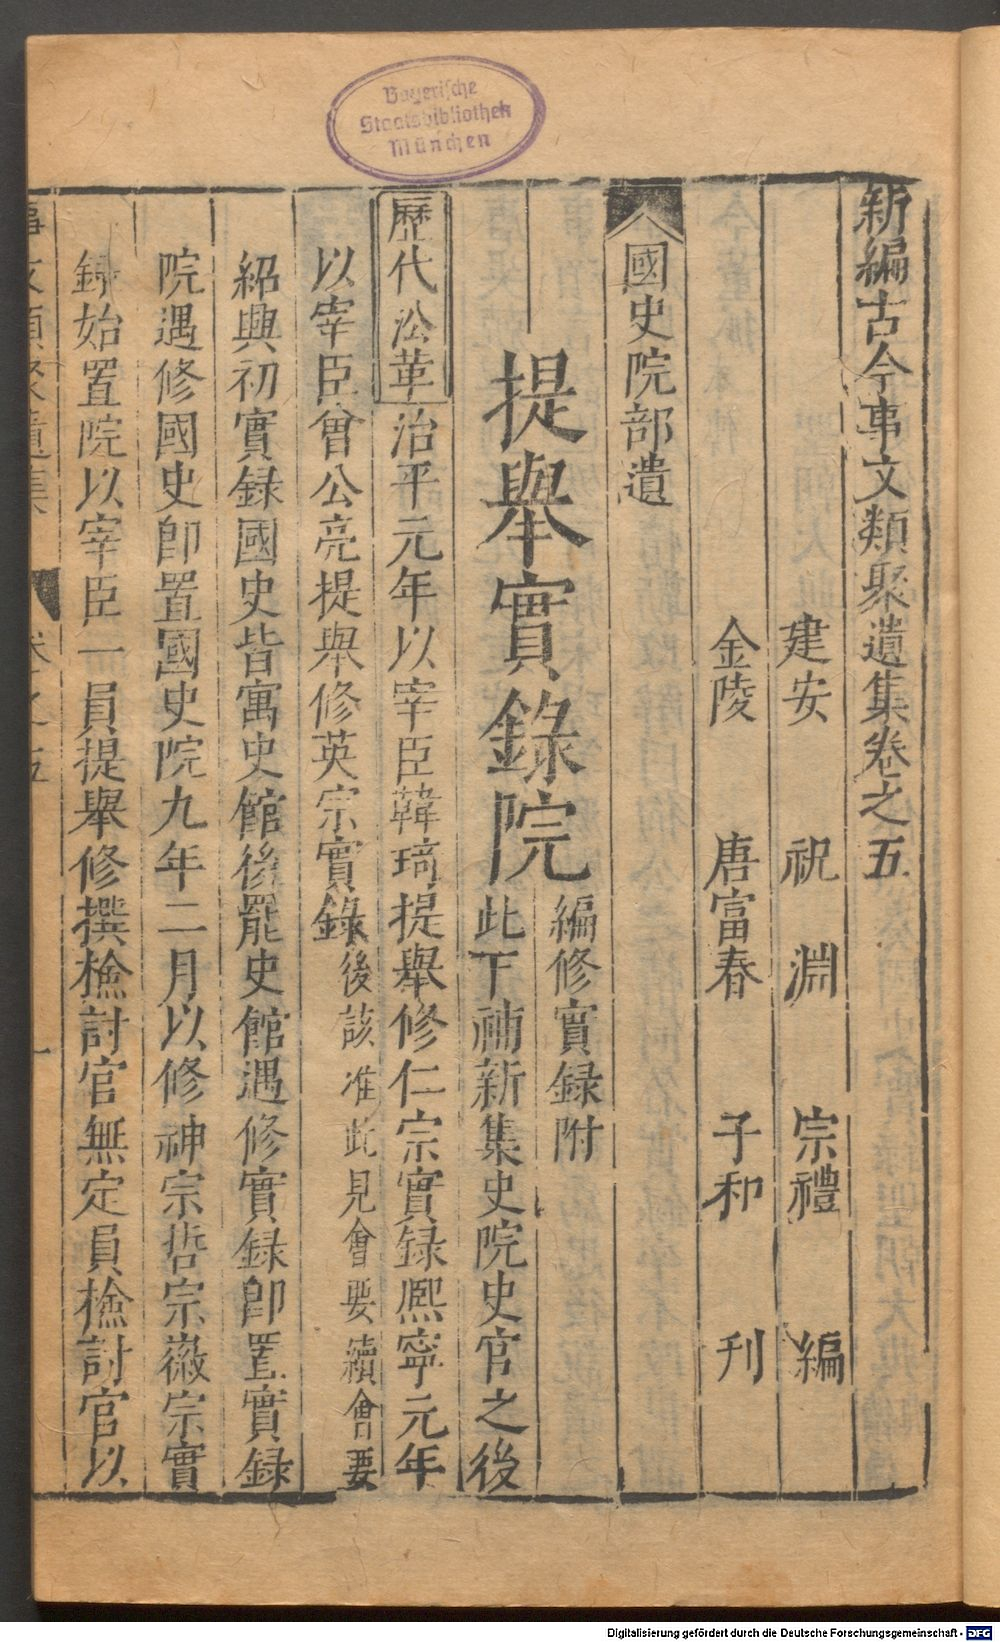 Bayerische
Staatsbibliothek
München
新編古今事文類聚遺集卷之五
建安 祝 淵 宗禮 編
金陵 唐富春 子和 刊
國史院部遺
提舉實錄院
編修實録附
此下補新集史院史官之後
歷代沿革 治平元年以宰臣韓琦提舉修仁宗實録熈寧元年
以宰臣曾公亮提舉修英宗實錄後該准此見會要續會要
紹興初實録國史皆寓史館後罷史館遇修實録卽置實録
院遇修國史卽置國史院九年二月以修神宗哲宗徽宗實
錄始置院以宰臣一員提舉修撰檢討官無定員檢討官以
事文類聚遺集 卷之五 一
Digitalisierung gefördert durch die Deutsche Forschungsgemeinschaft - DFG